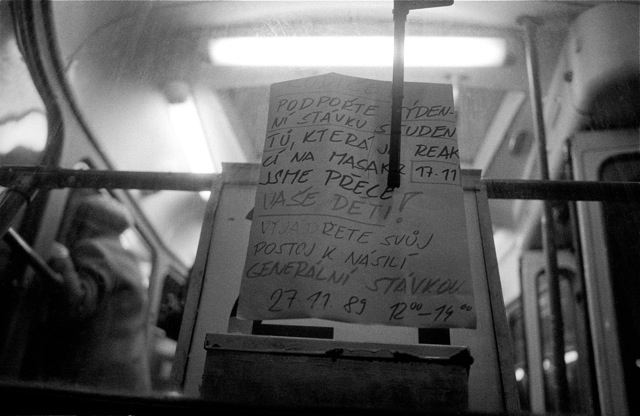 PODPOŘTE TÝDEN-
NÍ STÁVKU STUDEN
TŮ, KTERÁ JE REAK
CÍ NA MASAKR 17.11
JSME PŘECE
VAŠE DĚTI!
VYJÁDŘETE SVŮJ
POSTOJ K NÁSILÍ
GENERÁLNÍ STÁVKOU
27.11.89 12⁰⁰-14⁰⁰